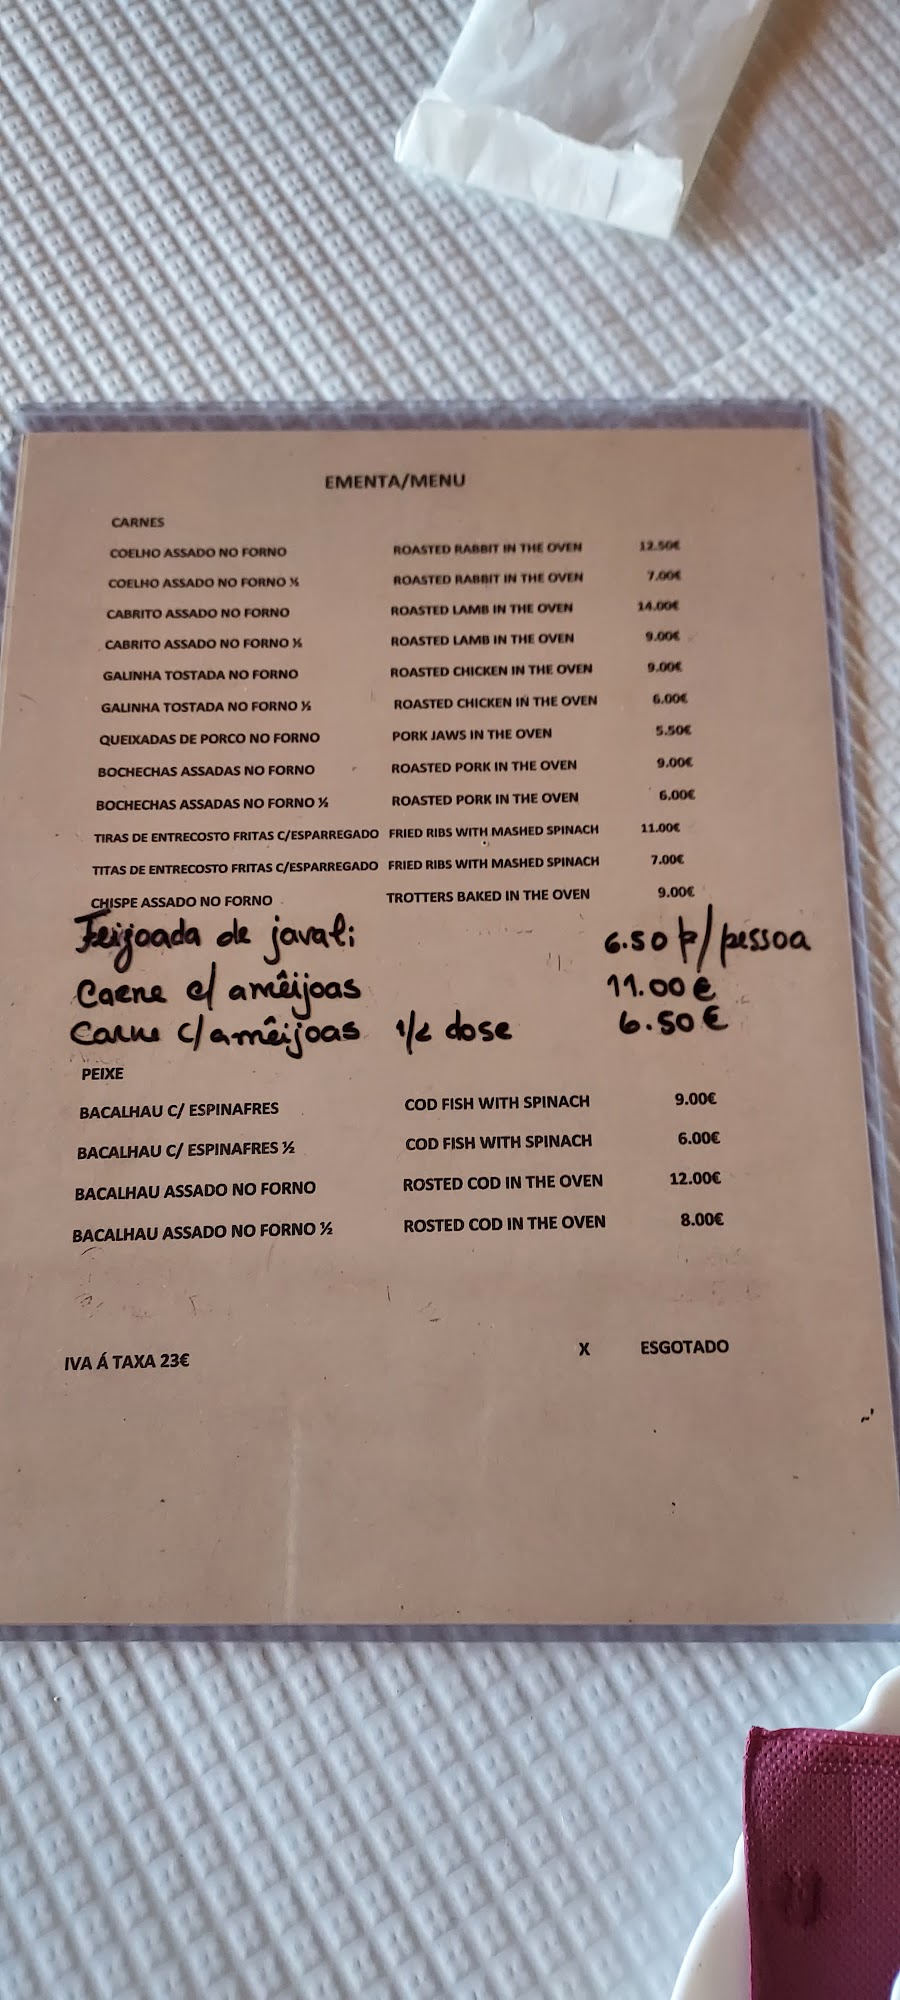 EMENTA/MENU
CARNES
COELHO ASSADO NO FORNO ROASTED RABBIT IN THE OVEN 12.50€
COELHO ASSADO NO FORNO ½ ROASTED RABBIT IN THE OVEN 7.00€
CABRITO ASSADO NO FORNO ROASTED LAMB IN THE OVEN 14.00€
CABRITO ASSADO NO FORNO ½ ROASTED LAMB IN THE OVEN 9.00€
GALINHA TOSTADA NO FORNO ROASTED CHICKEN IN THE OVEN 9.00€
GALINHA TOSTADA NO FORNO ½ ROASTED CHICKEN IN THE OVEN 6.00€
QUEIXADAS DE PORCO NO FORNO PORK JAWS IN THE OVEN 5.50€
BOCHECHAS ASSADAS NO FORNO ROASTED PORK IN THE OVEN 9.00€
BOCHECHAS ASSADAS NO FORNO ½ ROASTED PORK IN THE OVEN 6.00€
TIRAS DE ENTRECOSTO FRITAS C/ESPARREGADO FRIED RIBS WITH MASHED SPINACH 11.00€
TITAS DE ENTRECOSTO FRITAS C/ESPARREGADO FRIED RIBS WITH MASHED SPINACH 7.00€
CHISPE ASSADO NO FORNO TROTTERS BAKED IN THE OVEN 9.00€
Feijoada de javali 6.50 p/pessoa
Carne c/ amêijoas 11.00€
Carne c/amêijoas 1/2 dose 6.50€
PEIXE
BACALHAU C/ ESPINAFRES COD FISH WITH SPINACH 9.00€
BACALHAU C/ ESPINAFRES ½ COD FISH WITH SPINACH 6.00€
BACALHAU ASSADO NO FORNO ROSTED COD IN THE OVEN 12.00€
BACALHAU ASSADO NO FORNO ½ ROSTED COD IN THE OVEN 8.00€
IVA Á TAXA 23€ X ESGOTADO